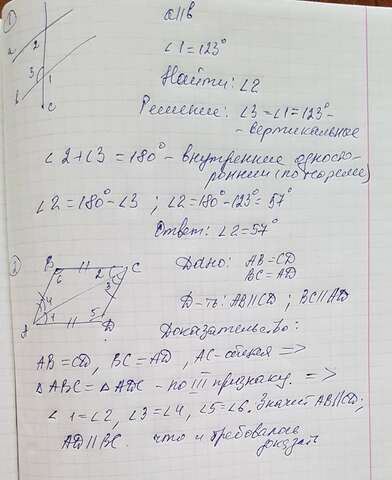 1
a
2
3
1
b
c
a∥b
∠1=123°
Найти: ∠2
Решение: ∠3=∠1=123°-
- вертикальные
∠2+∠3=180° - внутренние односто-
ронние (по теореме)
∠2=180°-∠3 ; ∠2=180°-123°=57°
Ответ: ∠2=57°
2
B
C
6
2
3
4
1
5
A
D
Дано: AB=CD
BC=AD
Д-ть: AB∥CD ; BC∥AD
Доказательство:
AB=CD, BC=AD, AC-общая =>
△ABC=△ADC - по III признаку. =>
∠1=∠2, ∠3=∠4, ∠5=∠6. Значит AB∥CD;
AD∥BC. что и требовалось
доказать